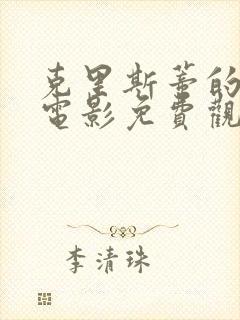 克里斯蒂的
電影免費觀
李清珠